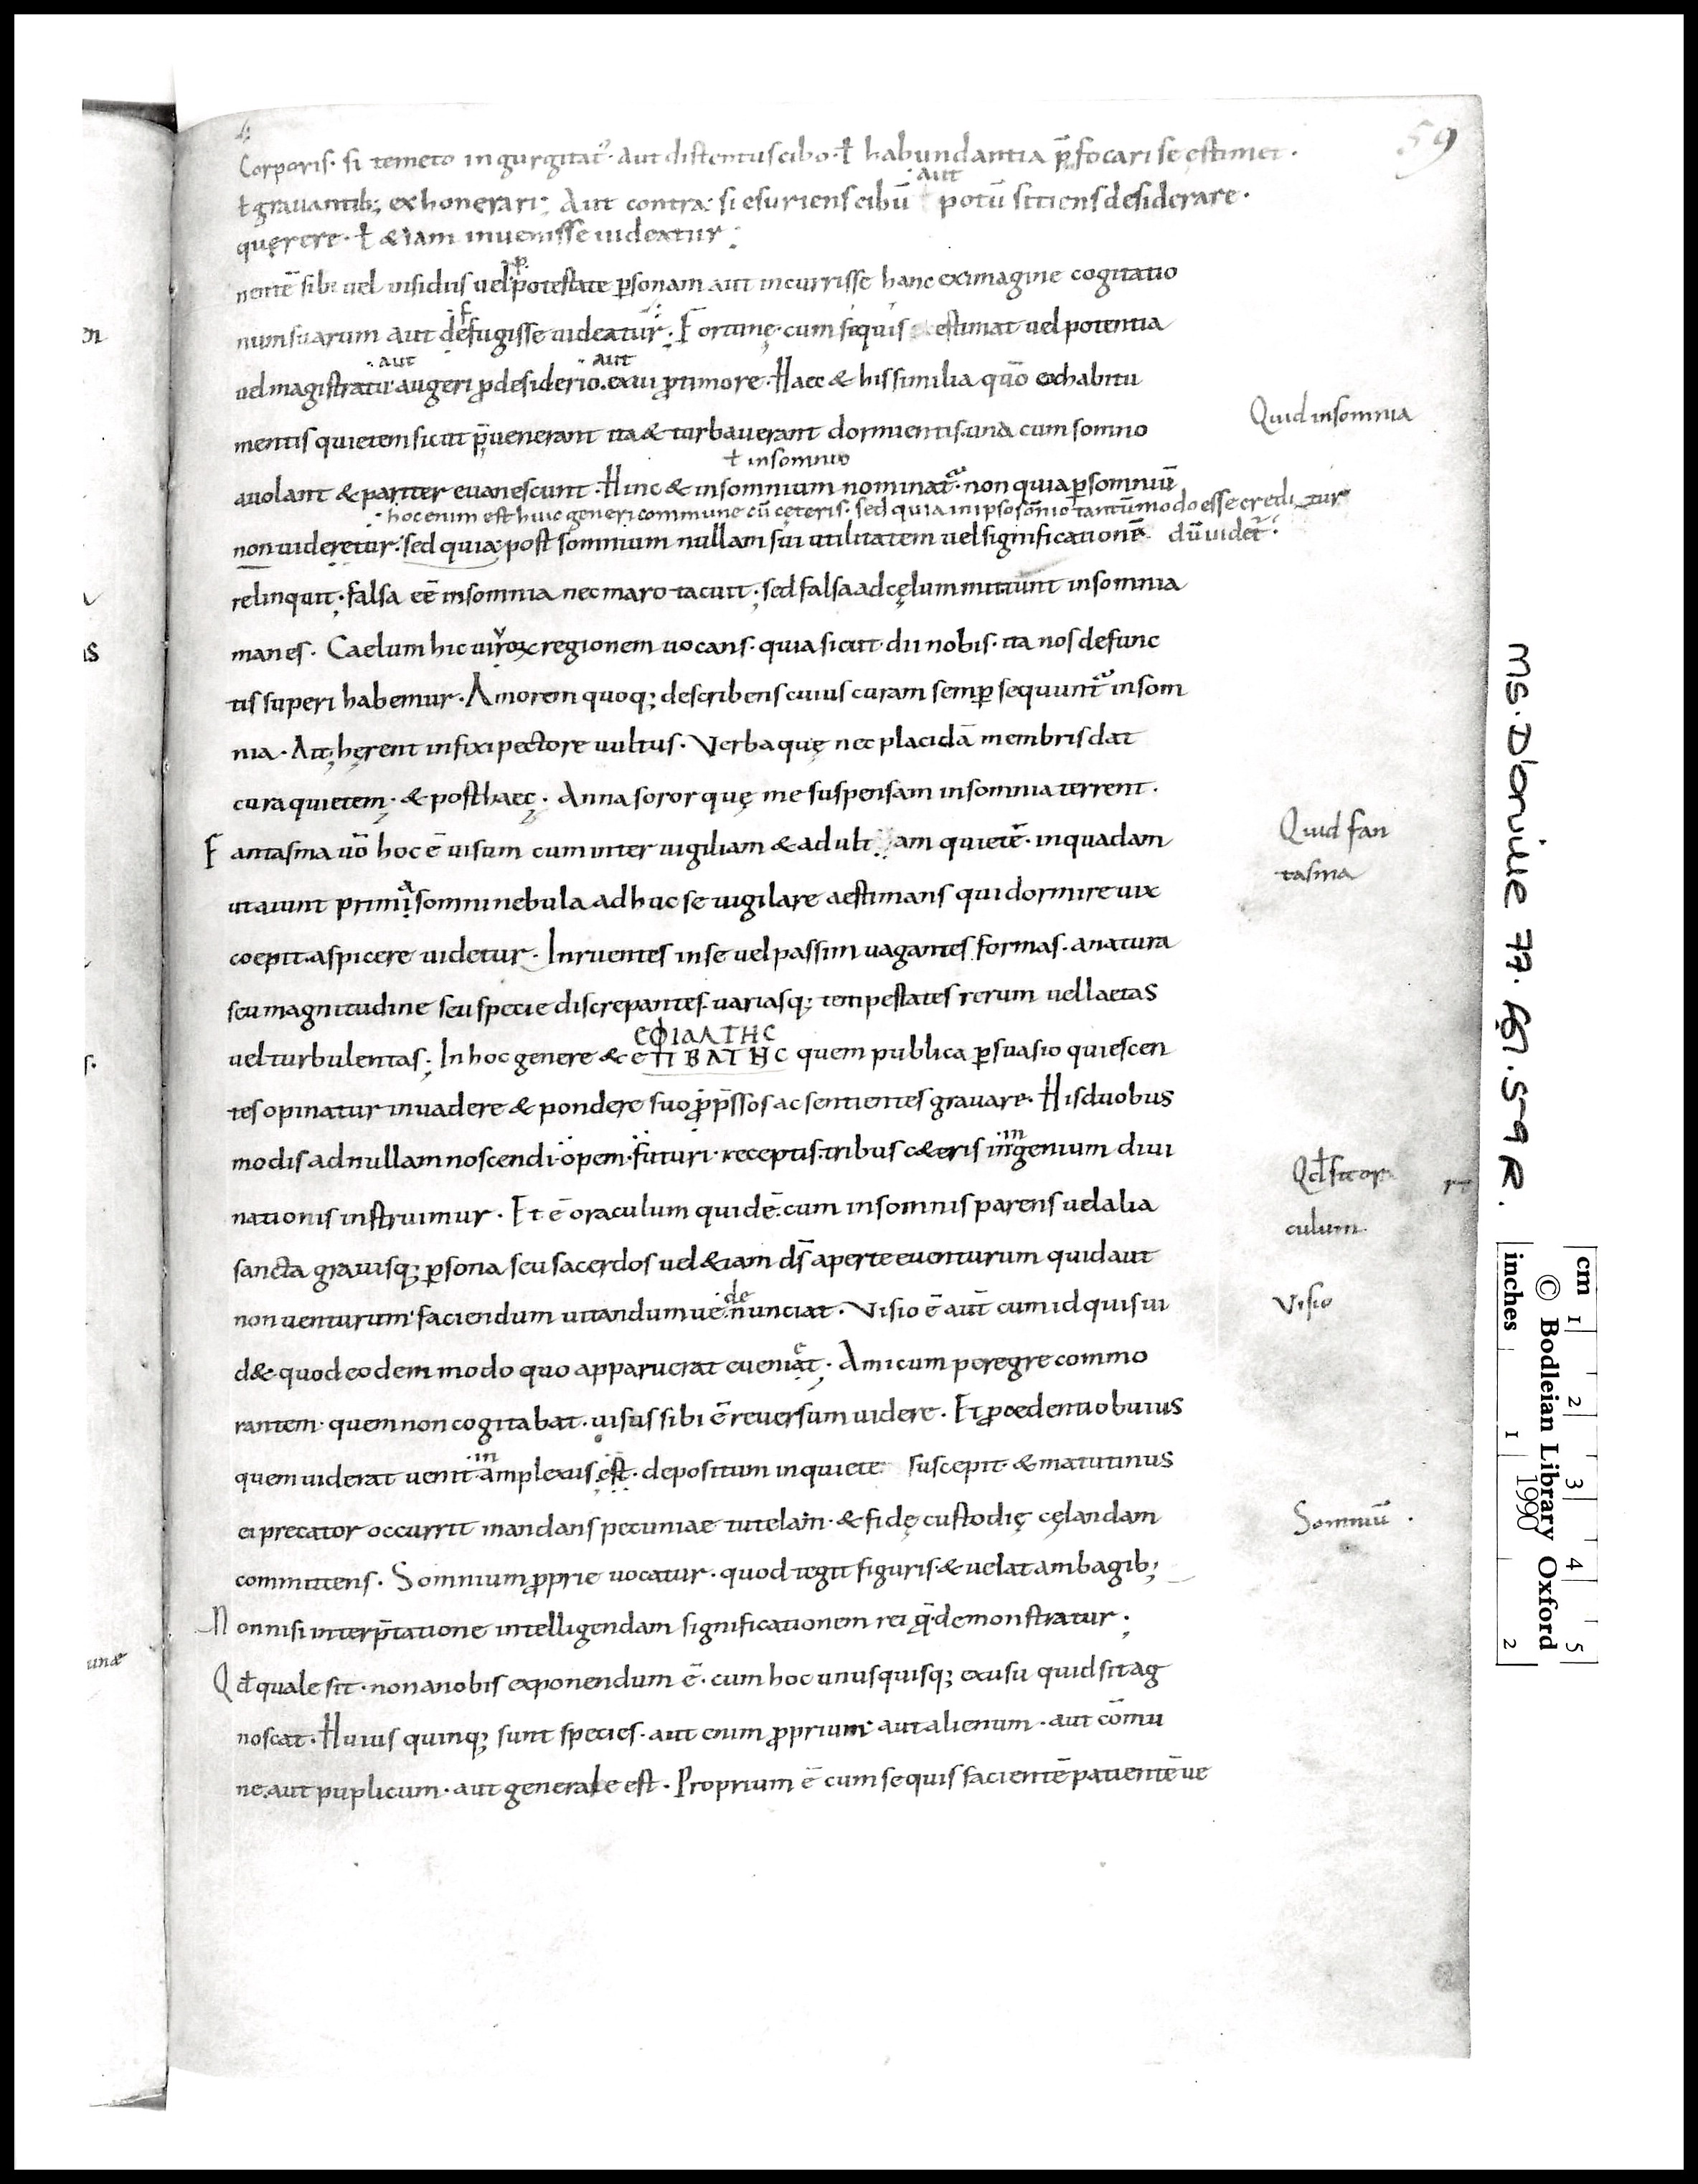 59
Corporis· si temeto ingurgitat᷑· aut distentus cibo· ł habundantia p̄focari se ęstimet·
ł grauantib; exhonerari; Aut contra: si esuriens cibū ·aut potū sitiens desiderare·
quęrere· ł &iam inuenisse uideatur;
nentē sibi uel insidiis uel potestate ꝑsonam aut incurrisse hanc ex imagine cogitatio
num suarum aut defugisse uideatur· Fortunę· cum si quis estimat uel potentia
·aut ·aut
uel magistratu augeri ꝓ desiderio· exui ꝓ timore· Haec & his similia quō ex habitu
Quid insomnia
mentis quietem sicut p̄uenerant ita & turbauerant dormientis· una cum somno
ł insomnio
auolant & pariter euanescunt· Hinc & insomnium nominat᷑· non quia ꝑ somniū
·hoc enim est huic generi commune cū cęteris· sed quia in ipso somnio tantūmodo esse creditur
non uideretur· sed quia post somnium nullam sui utilitatem uel significationē dū uidet᷑·
relinquit· falsa eē insomnia nec maro tacuit· sed falsa ad cęlum mittunt insomnia
manes· Caelum hic uiuoꝝ regionem uocans· quia sicut dii nobis· ita nos defunc
tis superi habemur· Amorem quoq; describens cuius curam semꝑ sequunt᷑ insom
nia· Ait; hęrent infixi pectore uultus· Verbaquę nec placidā membris dat
cura quietem· & post haec· Anna soror quę me suspensam insomnia terrent·
Fantasma uō hoc ē uisum cum inter uigiliam & adult am quietē· in quadam
Quid fan
tasma
ut aiunt prima somni nebula adhuc se uigilare aestimans qui dormire uix
coepit· aspicere uidetur· Inruentes in se uel passim uagantes formas· a natura
seu magnitudine seu specie discrepantes· uariasq; tempestates rerum uel laetas
ЄΦΙΑΛΤΗС
uel turbulentas; In hoc genere & ЄΠΙΒΑΤΗС quem publica ꝑsuasio quiescen
tes opinatur inuadere & pondere suo ꝓp̄ssos ac sentientes grauare· His duobus
modis ad nullam noscendi opem futuri receptis· tribus c&eris in ingenium diui
Qđ sit or
culum
nationis instruimur· Et ē oraculum quidē· cum in somnis parens uel alia
sancta grauisq; ꝑsona seu sacerdos uel &iam d̄s aperte euenturum quid aut
·de
non uenturum· faciendum uitandumue nunciat· Visio ē aut̄ cum id quis ui
Visio
d& quod eodem modo quo apparuerat eueniat· Amicum peregre commo
rantem· quem non cogitabat· uisus sibi ē reuersum uidere· Et ꝓcedenti obuius
·in
quem uiderat uenit amplexus est· depositum in quiete suscepit & matutinus
ei precator occurrit mandans pecuniae tutelam· & fidę custodię cęlandam
Somniū·
committens· Somnium ꝓprie uocatur· quod tegit figuris· & uelat ambagib;
Non nisi interp̄tatione intelligendam significationem rei q̄ demonstratur·
Qđ quale sit· non a nobis exponendum ē· cum hoc unusquisq; ex usu quid sit ag
noscat· Huius quinq; sunt species· aut enim ꝓprium aut alienum· aut cōmu
ne· aut puplicum· aut generale est· Proprium ē cum se quis facientē patientēue
MS. D'orville 77. fol. 59R.
cm 1 2 3 4 5
inches 1 2
© Bodleian Library Oxford
1990